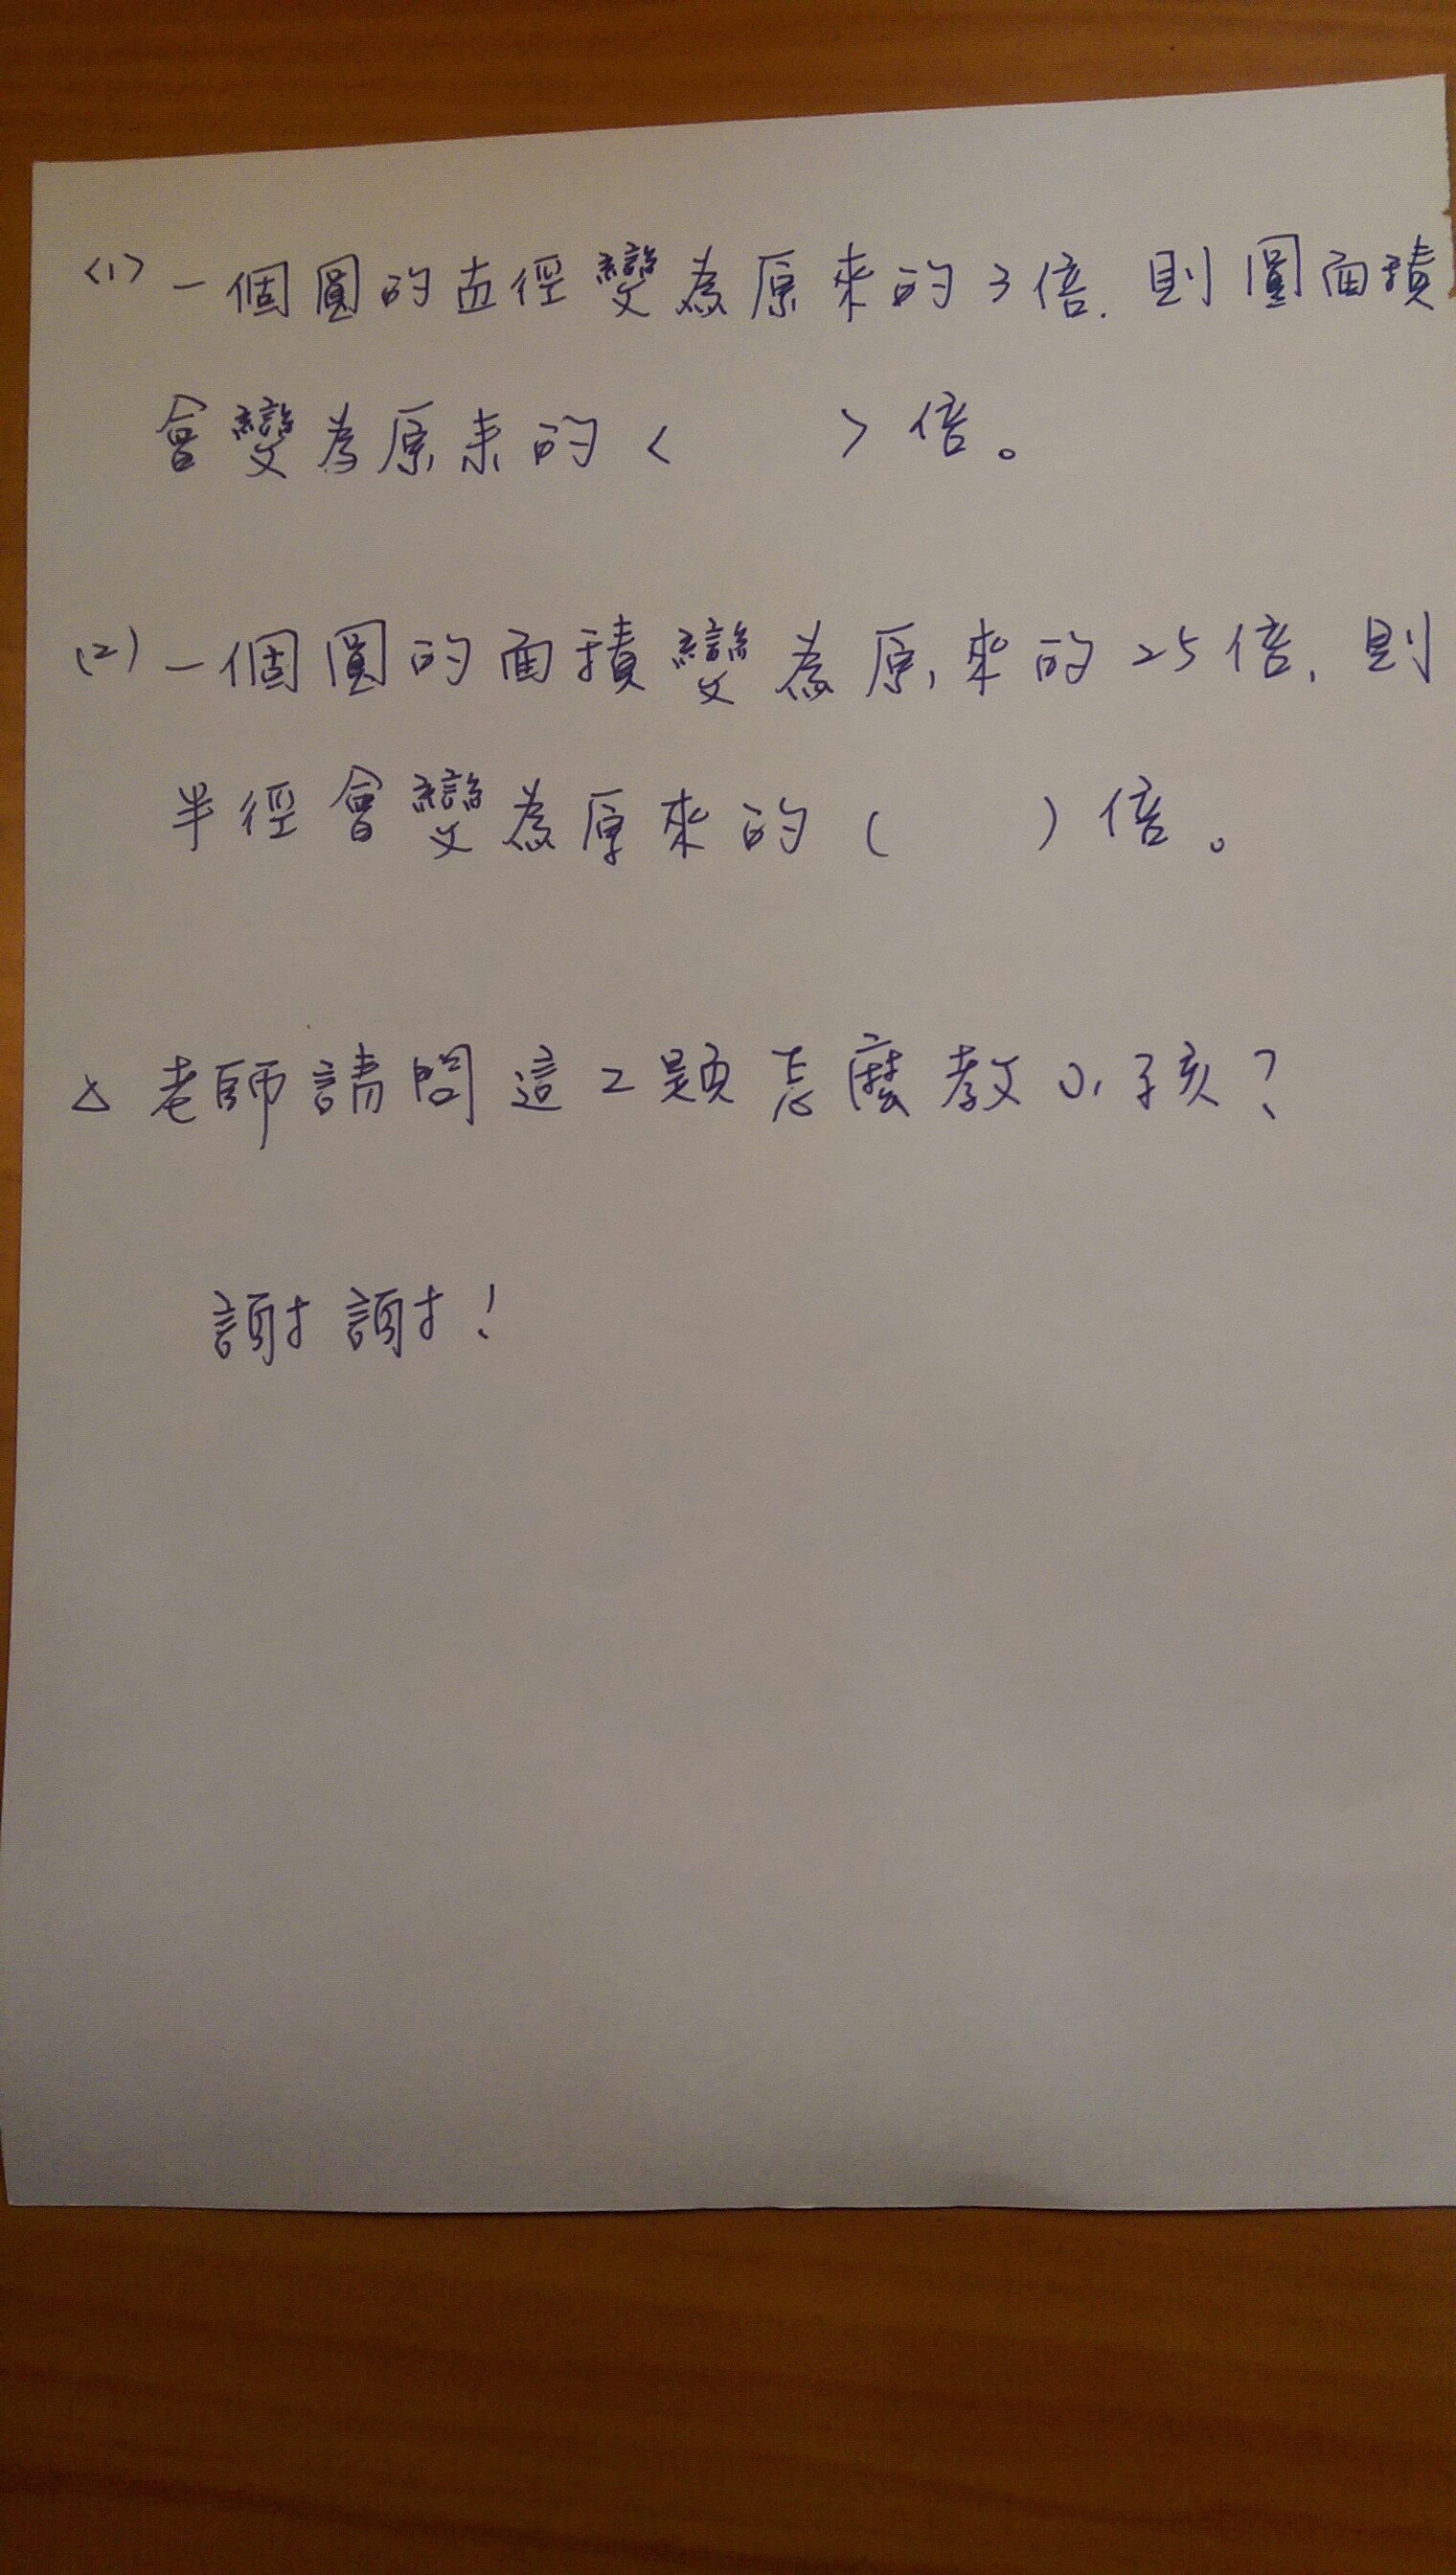 <1> 一個圓的直徑變為原來的3倍. 則圓面積
會變為原來的<   >倍。
(2) 一個圓的面積變為原來的25倍. 則
半徑會變為原來的(   )倍。
△ 老師請問這2題怎麼教小孩?
謝謝!